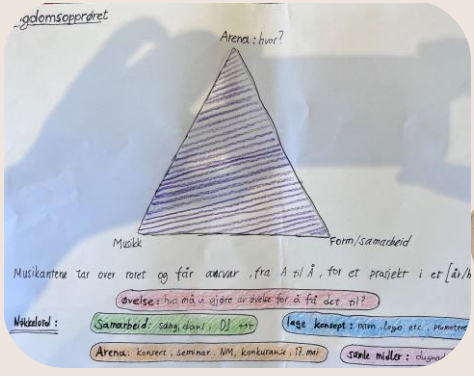 gdomsopprøret
Arena: hvor?
Musikk
Form/samarbeid
Musikantene tar over roret og får ansvar, fra A til Å, for et prosjekt i et [år/h
øvelse: hva må vi gjøre av øvelse for å få det til?
Nøkkelord:
Samarbeid: sang, dans, DJ +++
lage konsept: navn, logo etc, promotere
Arena: konsert, seminar, NM, konkuranse, 17.mai
samle midler: dugnad